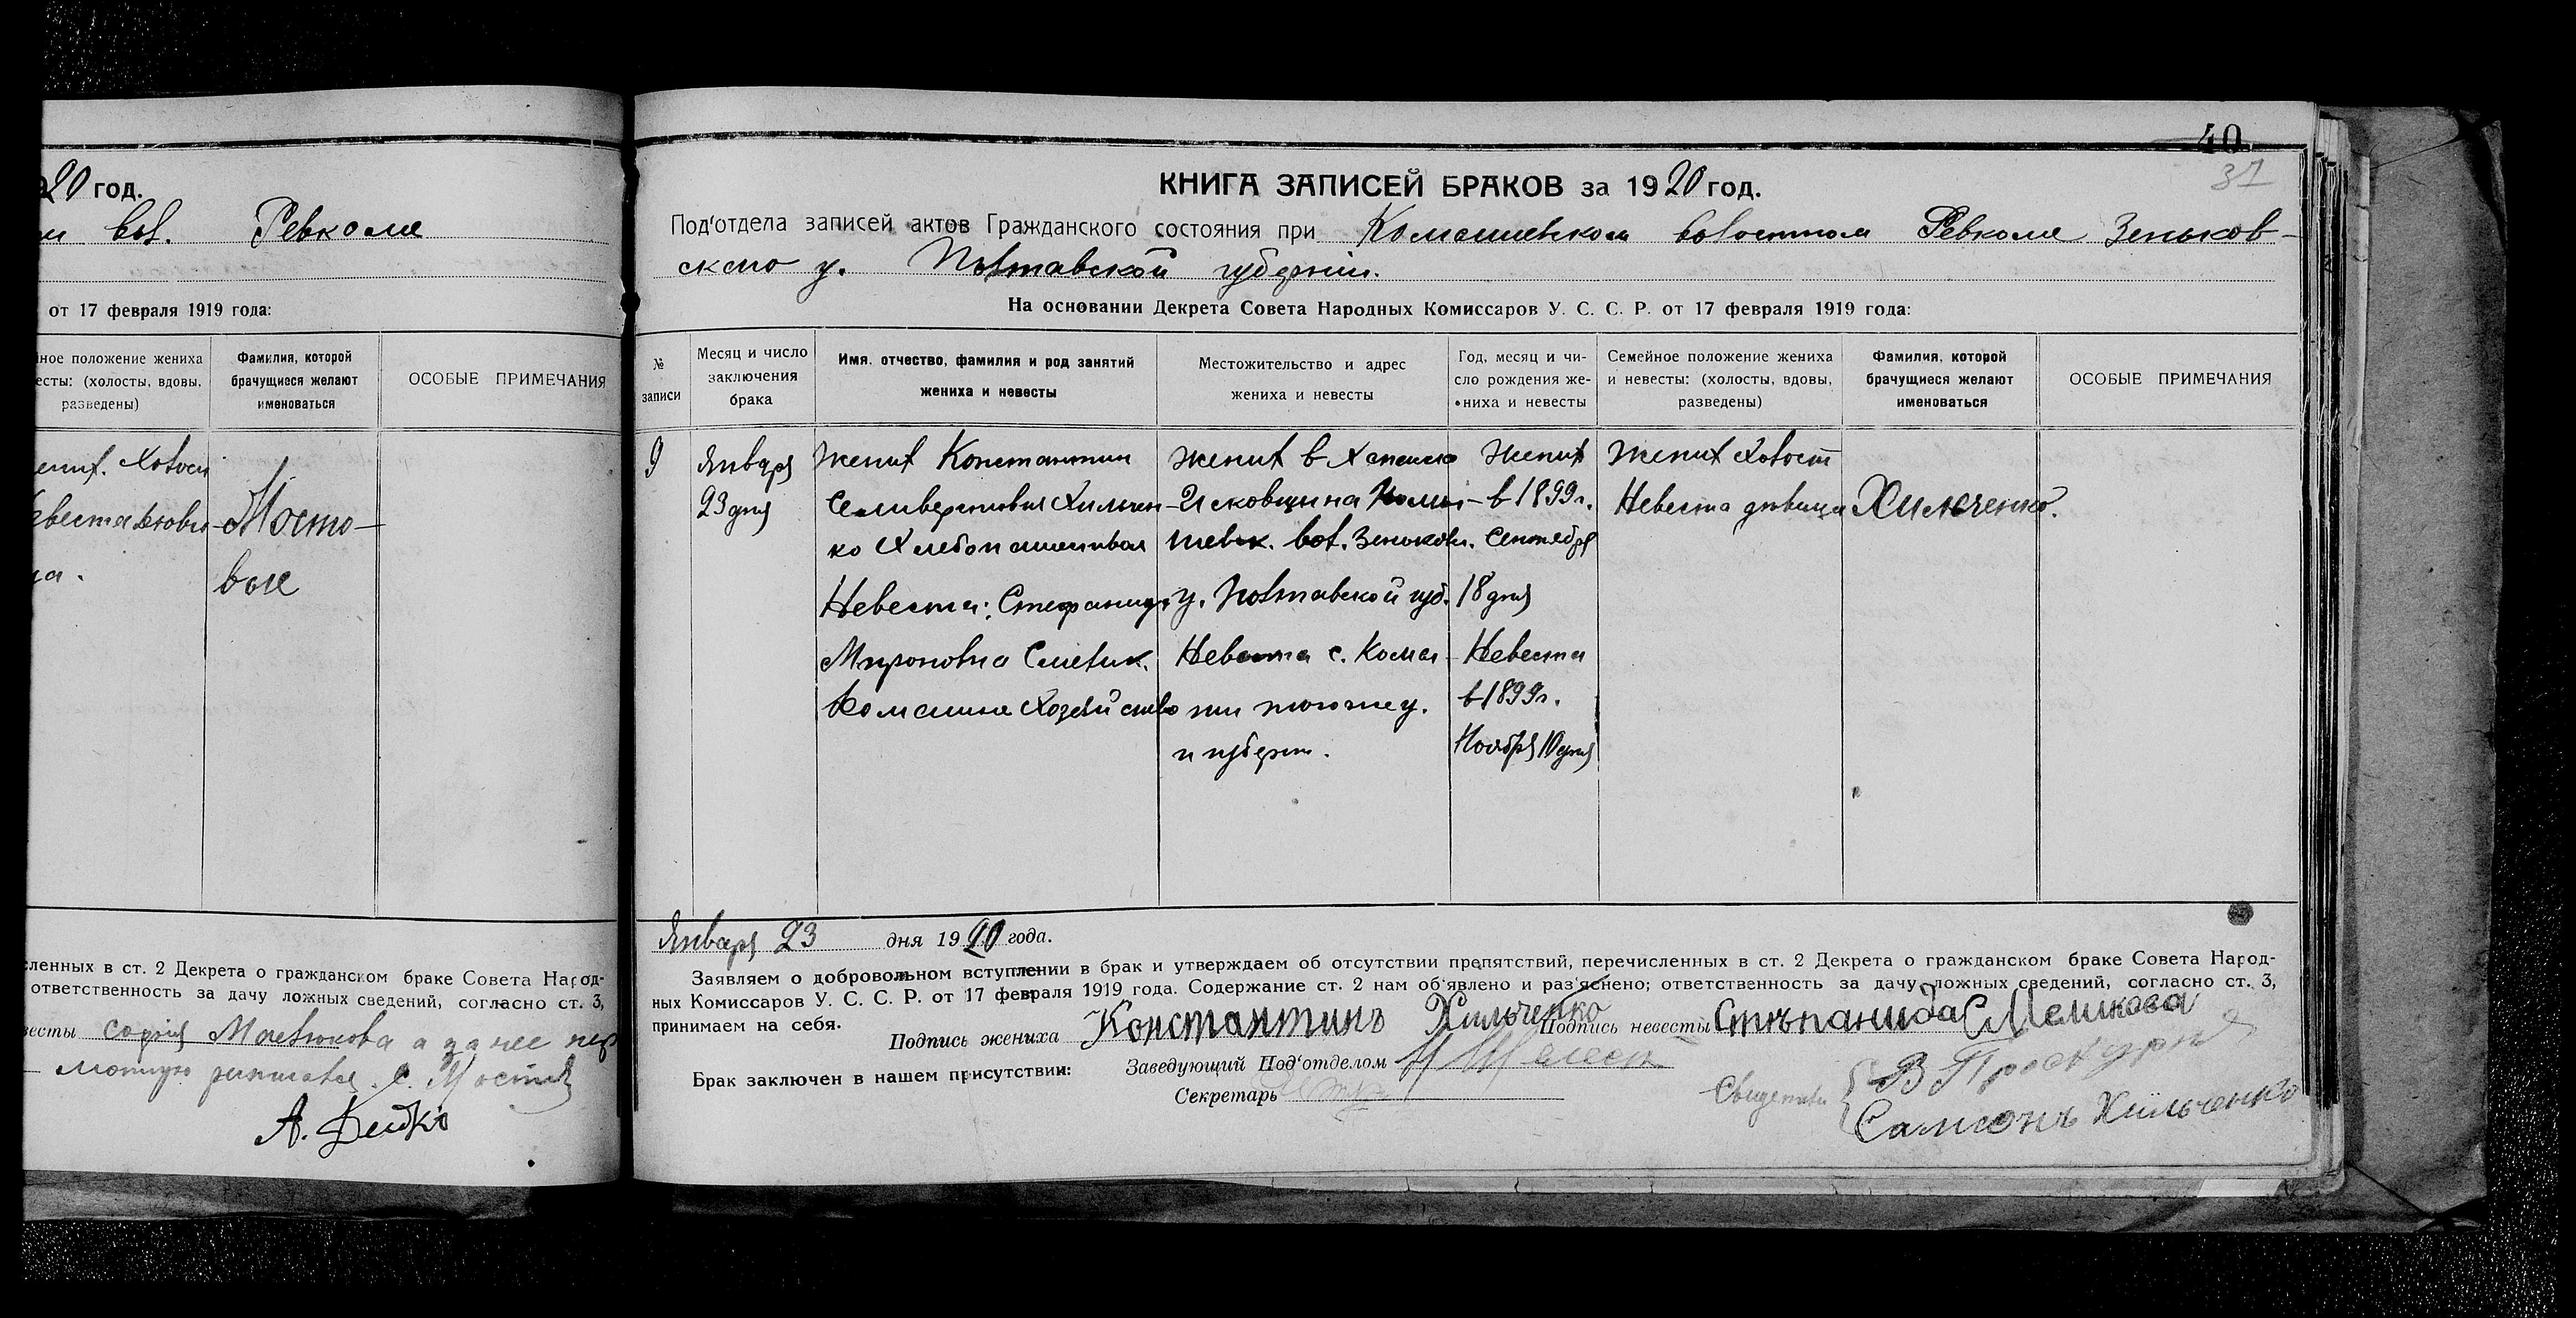 20 год.
вол. Ревкоме
от 17 февраля 1919 года:
ное положение жениха
весты: (холосты, вдовы,
разведены)
Фамилия, которой
брачущиеся желают
именоваться
ОСОБЫЕ ПРИМЕЧАНИЯ
Мосто-
вые
сленных в ст. 2 Декрета о гражданском браке Совета Народ-
ответственность за дачу ложных сведений, согласно ст. 3,
весты София а далее
А.
40
37
КНИГА ЗАПИСЕЙ БРАКОВ за 1920 год.
Под'отдела записей актов Гражданского состояния при Комышевском волостном Ревкоме Зеньков-
ского у. Полтавской губернии.
На основании Декрета Совета Народных Комиссаров У. С. С. Р. от 17 февраля 1919 года:
№
записи
Месяц и число
заключения
брака
Имя, отчество, фамилия и род занятий
жениха и невесты
Местожительство и адрес
жениха и невесты
Год, месяц и чи-
сло рождения же-
ниха и невесты
Семейное положение жениха
и невесты: (холосты, вдовы,
разведены)
Фамилия, которой
брачущиеся желают
именоваться
ОСОБЫЕ ПРИМЕЧАНИЯ
9
Января
23 дня
Жених Константин
Селиверстович Хильчен-
ко Хлебопашество
Невеста: Стефанида
Мироновна
Домашнее хозяйство
Жених
вол. Зеньковск.
у. Полтавской губ.
Невеста с. Комы
ши того же у.
и губерн.
Жених
в 1899 г.
Сентября
18 дня
Невеста
в 1899 г.
Ноября 10 дня
Жених холост
Невеста девица
Хильченко.
Января 23 дня 1920 года.
Заявляем о добровольном вступлении в брак и утверждаем об отсутствии препятствий, перечисленных в ст. 2 Декрета о гражданском браке Совета Народ-
ных Комиссаров У. С. С. Р. от 17 февраля 1919 года. Содержание ст. 2 нам об'явлено и раз'яснено; ответственность за дачу ложных сведений, согласно ст. 3,
принимаем на себя.
Подпись жениха Константинъ Хильченко Подпись невесты Стѣпанида
Брак заключен в нашем присутствии:
Заведующий Под'отделом
Секретарь
Свидетели
В Проскурня
Самсонъ Хильченко